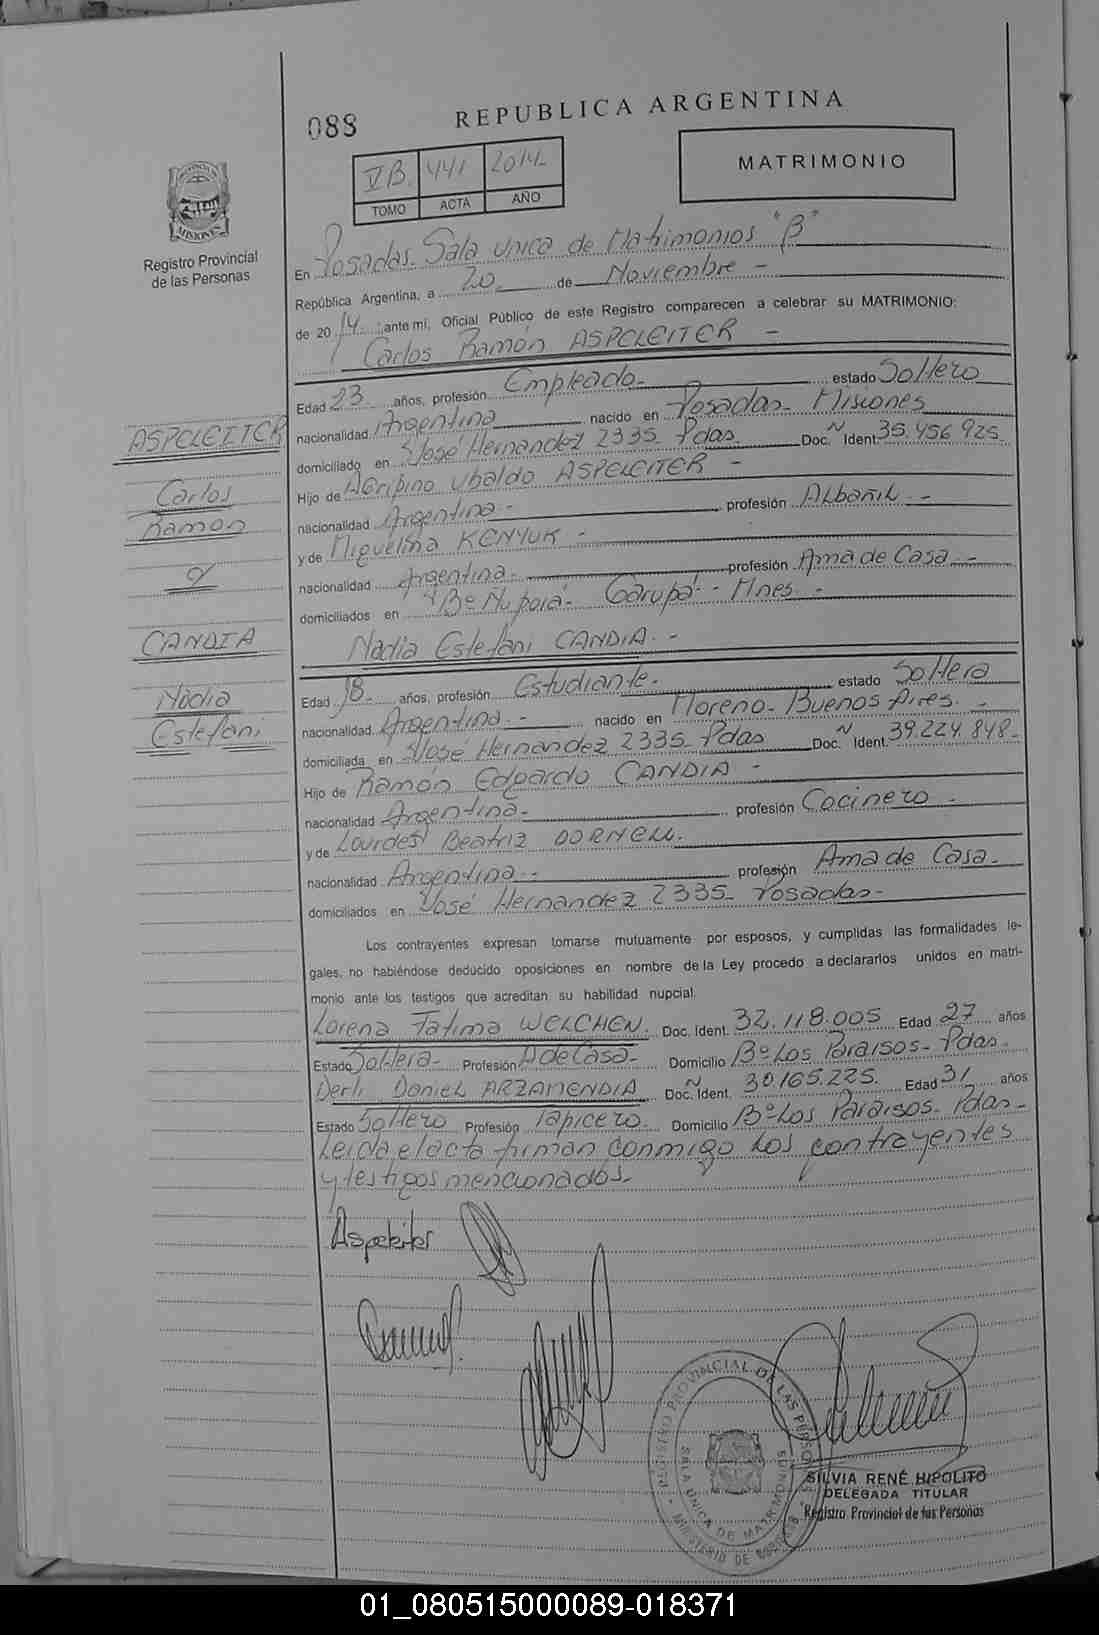 088
REPUBLICA ARGENTINA
MATRIMONIO
VB. 441 2014-
TOMO ACTA AÑO
PROVINCIA DE
MISIONES
Registro Provincial
de las Personas
En Posadas. Sala Unica de Matrimonios "B"
República Argentina, a 20 de Noviembre -
de 2014 ; ante mí, Oficial Público de este Registro comparecen a celebrar su MATRIMONIO:
Carlos Ramón ASPELEITER -
Edad 23 años, profesión Empleado - estado Soltero
nacionalidad Argentina nacido en Posadas - Misiones
domiciliado en José Hernandez 2335 - Pdas Doc. N Ident. 35.456.925 -
Hijo de Agripino Ubaldo ASPELEITER -
nacionalidad Argentina - profesión Albañil -
y de Miguelina KENYUK -
nacionalidad Argentina - profesión Ama de Casa -
domiciliados en Bº Ñu Porá - Garupá - Mnes. -
Nadia Estefani CANDIA. -
Edad 18 años, profesión Estudiante - estado Soltera
nacionalidad Argentina - nacido en Moreno - Buenos Aires. -
domiciliada en José Hernandez 2335 - Pdas Doc. N Ident. 39.224.848 -
Hijo de Ramón Edgardo CANDIA -
nacionalidad Argentina - profesión Cocinero -
y de Lourdes Beatriz DORNELL.
nacionalidad Argentina - profesión Ama de Casa -
domiciliados en José Hernandez 2335 - Posadas -
Los contrayentes expresan tomarse mutuamente por esposos, y cumplidas las formalidades le-
gales, no habiéndose deducido oposiciones en nombre de la Ley procedo a declararlos unidos en matri-
monio ante los testigos que acreditan su habilidad nupcial.
Lorena Fatima WELCHEN. Doc. Ident. 32.118.005 Edad 27 años
Estado Soltera - Profesión A de Casa - Domicilio Bº Los Paraisos - Pdas -
Derli Daniel ARZAMENDIA Doc. N Ident. 30.165.225. Edad 31 años
Estado Soltero Profesión Tapicero Domicilio Bº Los Paraisos - Pdas -
Leida el acta firman conmigo los contrayentes
y testigos mencionados -
ASPELEITER
Carlos
Ramon
c/
CANDIA
Nadia
Estefani
Aspeleiter
REGISTRO PROVINCIAL DE LAS PERSONAS
SALA UNICA DE MATRIMONIOS
MINISTERIO DE GOBIERNO
SILVIA RENÉ HIPOLITO
DELEGADA TITULAR
Registro Provincial de las Personas
01_080515000089-018371